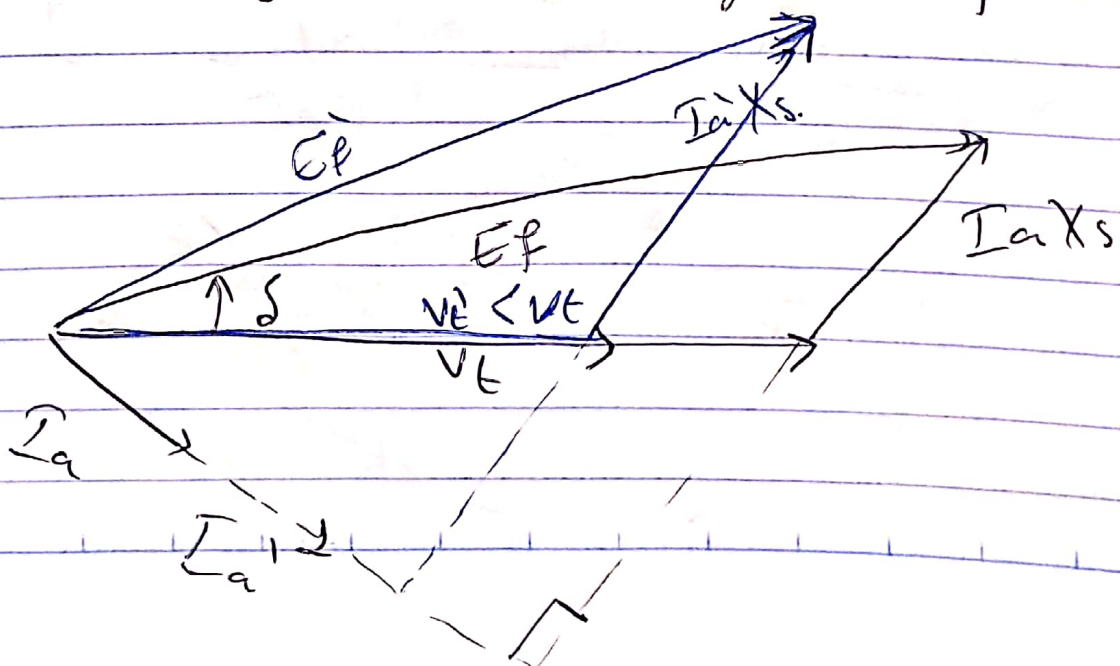 Èf
Ia̓ Xs.
Ef
Ia Xs
δ
Vt̀ < Vt
Vt
Ia
Ia'